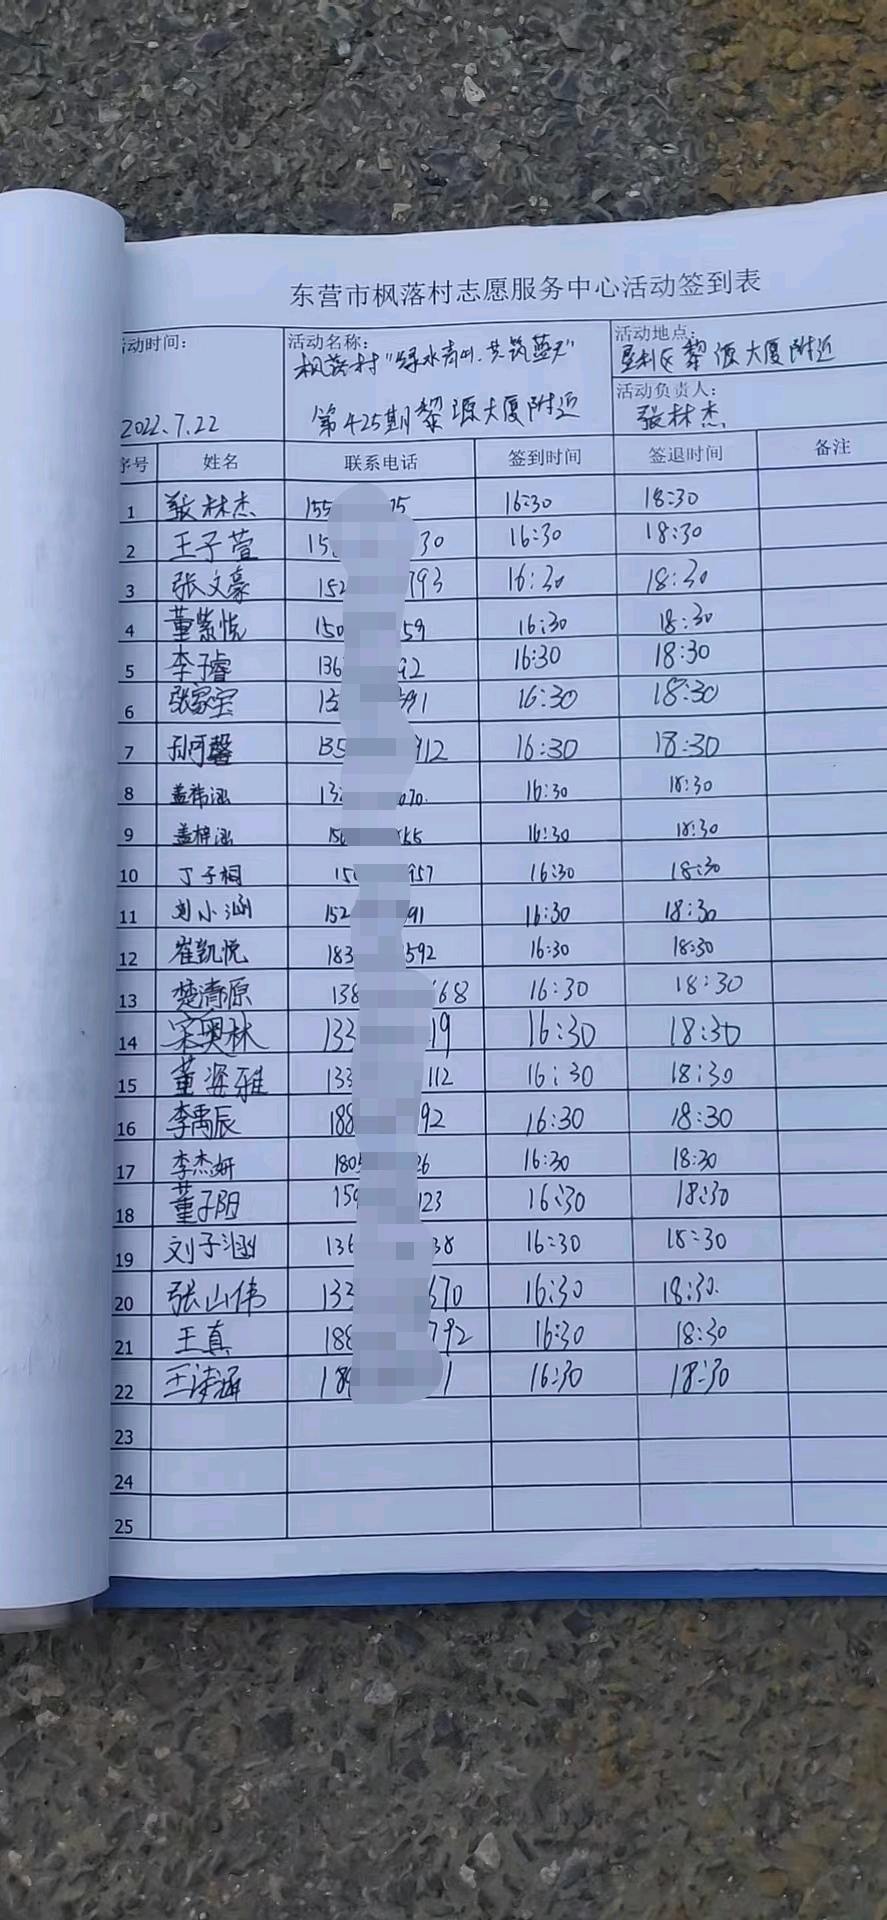 东营市枫落村志愿服务中心活动签到表
活动时间: 活动名称: 活动地点:
枫落村"绿水青山.共筑蓝天" 垦利区黎源大厦附近
活动负责人:
2022.7.22 第425期黎源大厦附近 张林杰
序号 姓名 联系电话 签到时间 签退时间 备注
1 张林杰 155 75 16:30 18:30
2 王子萱 15 30 16:30 18:30
3 张文豪 152 793 16:30 18:30
4 董紫悦 150 59 16:30 18:30
5 李子睿 136 92 16:30 18:30
6 张家宝 13 91 16:30 18:30
7 孙可馨 135 912 16:30 18:30
8 盖祎泓 13 070. 16:30 18:30
9 盖梓泓 15 65 16:30 18:30
10 丁子桐 15 957 16:30 18:30
11 刘小涵 152 91 16:30 18:30
12 崔凯悦 183 592 16:30 18:30
13 楚清原 138 668 16:30 18:30
14 宋奥林 133 19 16:30 18:30
15 董姿雅 133 112 16:30 18:30
16 李禹辰 188 92 16:30 18:30
17 李杰妍 180 26 16:30 18:30
18 董子阳 159 123 16:30 18:30
19 刘子涵 136 38 16:30 18:30
20 张山伟 133 670 16:30 18:30.
21 王真 188 792 16:30 18:30
22 18 1 16:30 18:30
23
24
25